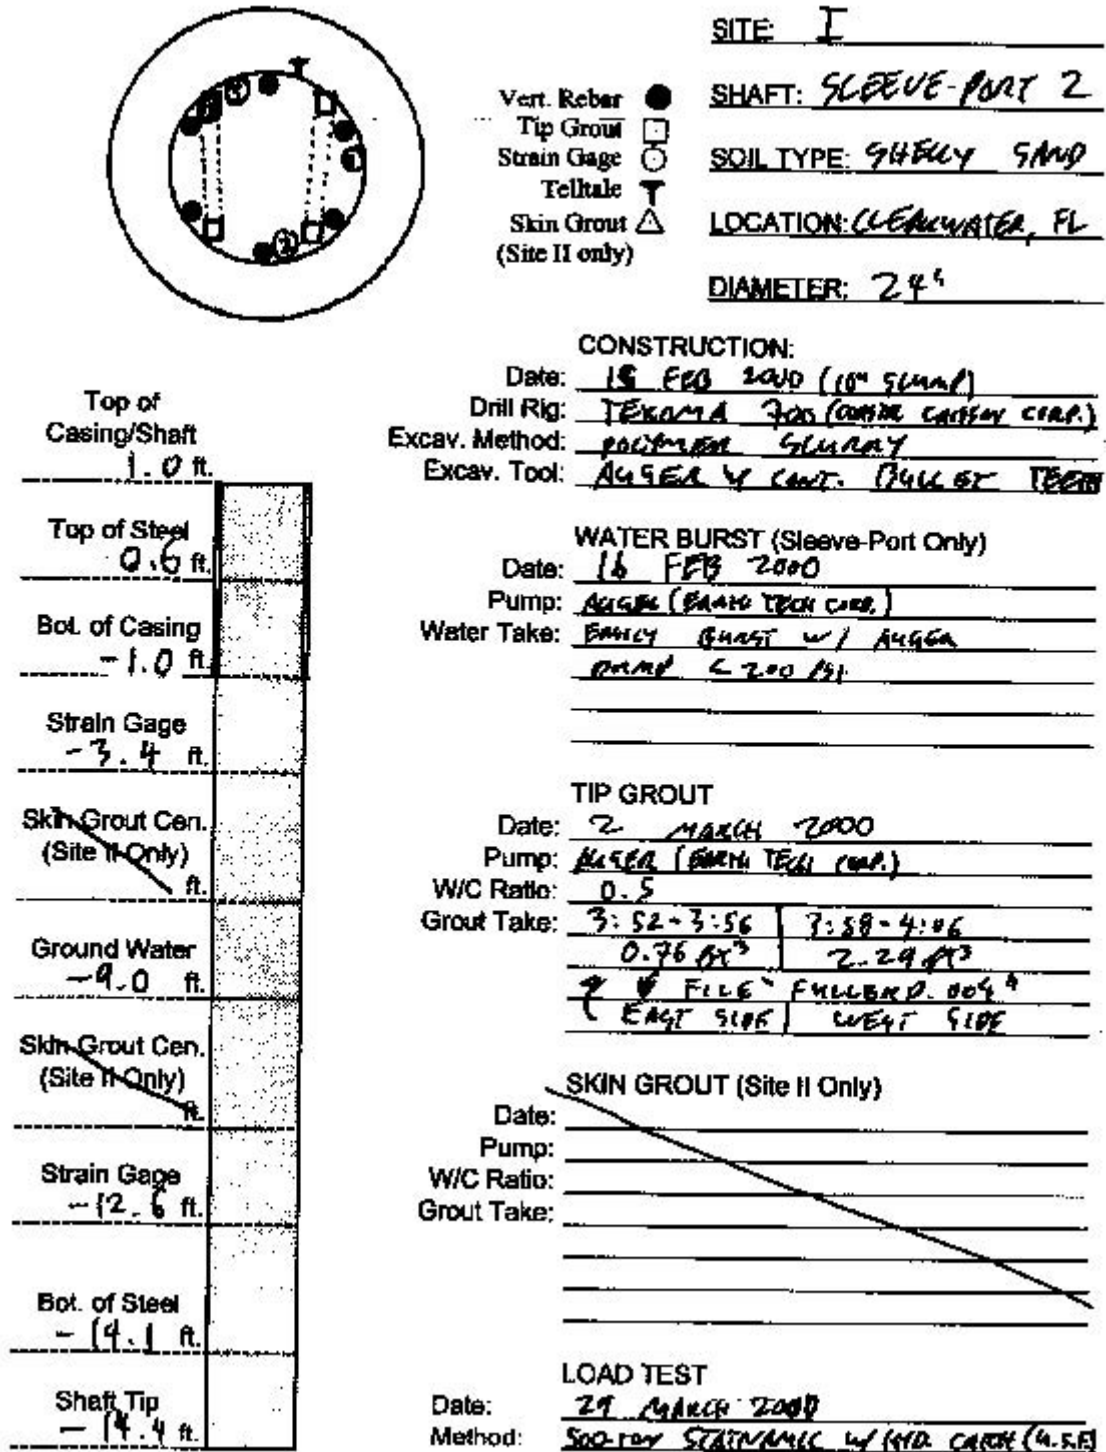 SITE: I
SHAFT: SLEEVE-PORT 2
SOIL TYPE: SHELLY SAND
LOCATION: CLEARWATER, FL
DIAMETER: 24"
Vert. Rebar
Tip Grout
Strain Gage
Telltale
Skin Grout
(Site II only)
Top of
Casing/Shaft
1.0 ft.
Top of Steel
0.6 ft.
Bot. of Casing
-1.0 ft.
Strain Gage
-3.4 ft.
Skin Grout Cen.
(Site II Only)
ft.
Ground Water
-9.0 ft.
Skin Grout Cen.
(Site II Only)
ft.
Strain Gage
-12.6 ft.
Bot. of Steel
-14.1 ft.
Shaft Tip
-14.4 ft.
CONSTRUCTION:
Date: FEB 2000 (10" SLUMP)
Drill Rig: TEXOMA 700 (CAISSON CORP.)
Excav. Method: POLYMER SLURRY
Excav. Tool: AUGER W/ CONT. BULLET TEETH
WATER BURST (Sleeve-Port Only)
Date: 16 FEB 2000
Pump: AUGER (EARTH TECH CORP.)
Water Take: EASILY BURST W/ AUGER
PUMP < 200 PSI
TIP GROUT
Date: 2 MARCH 2000
Pump: AUGER (EARTH TECH CORP.)
W/C Ratio: 0.5
Grout Take: 3:52-3:56 | 3:58-4:06
0.76 ft³ | 2.29 ft³
FILE "FULLBRD.004"
EAST SIDE | WEST SIDE
SKIN GROUT (Site II Only)
Date:
Pump:
W/C Ratio:
Grout Take:
LOAD TEST
Date: 29 MARCH 2000
Method: 500-TON STATNAMIC W/ HYD. CATCH (U.S.F.)